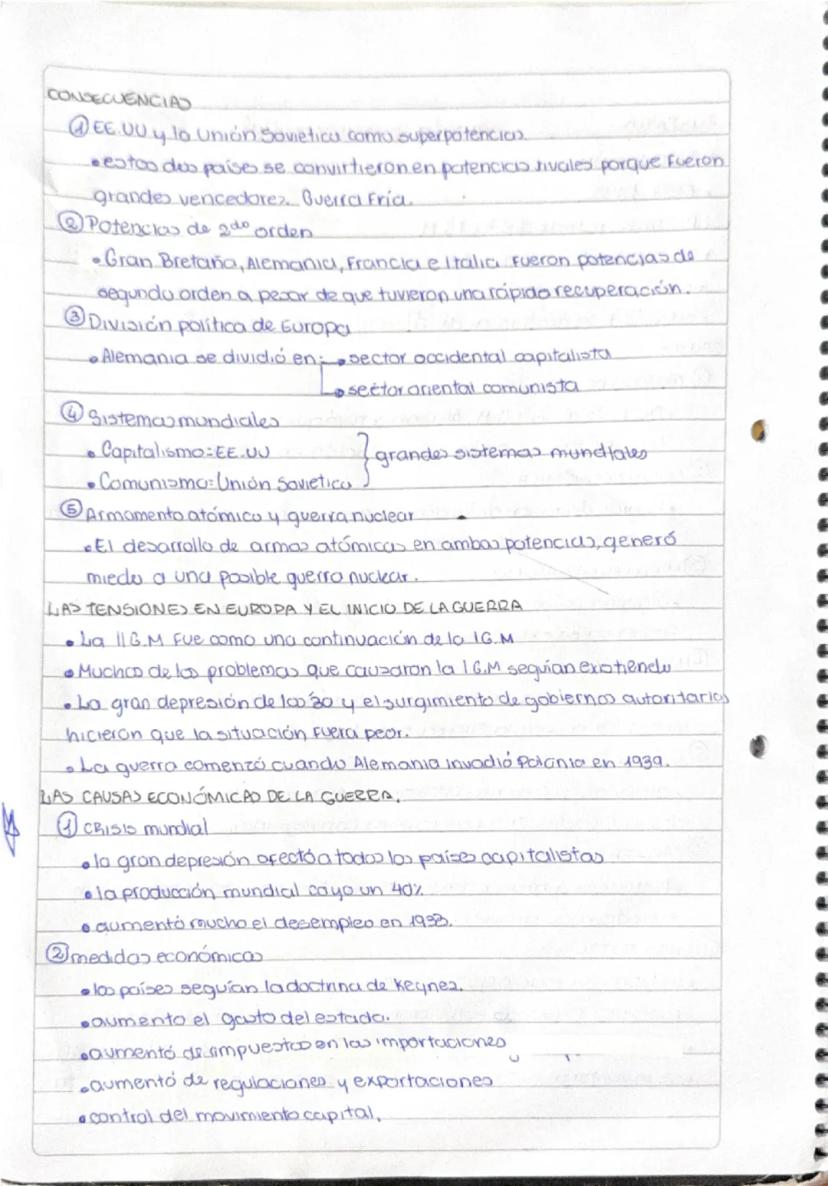 CONSECUENCIAS
① EE.UU y la Unión Sovietica como superpotencias.
• estos dos países se convirtieron en potencias rivales porque fueron
grandes vencedores. Guerra Fría.
② Potencias de 2do orden
• Gran Bretaña, Alemania, Francia e Italia fueron potencias de
segundo orden a pesar de que tuvieron una rápida recuperación.
③ División política de Europa
• Alemania se dividió en: → sector occidental capitalista
→ sector oriental comunista
④ Sistemas mundiales
• Capitalismo: EE.UU } grandes sistemas mundiales
• Comunismo: Unión Sovietica
⑤ Armamento atómico y guerra nuclear
• El desarrollo de armas atómicas en ambas potencias, generó
miedo a una posible guerra nuclear.
LAS TENSIONES EN EUROPA Y EL INICIO DE LA GUERRA
• La II G.M fue como una continuación de la I G.M
• Muchos de los problemas que causaron la I G.M seguían existiendo
• La gran depresión de los 30 y el surgimiento de gobiernos autoritarios
hicieron que la situación fuera peor.
• La guerra comenzó cuando Alemania invadió Polonia en 1939.
LAS CAUSAS ECONÓMICAS DE LA GUERRA.
① CRISIS mundial
• la gran depresión afectó a todos los países capitalistas
• la producción mundial cayo un 40%
• aumentó mucho el desempleo en 1933.
② medidas económicas
• los países seguían la doctrina de Keynes.
• aumento el gasto del estado.
• aumentó de impuestos en las importaciones
• aumentó de regulaciones y exportaciones
• control del movimiento capital.